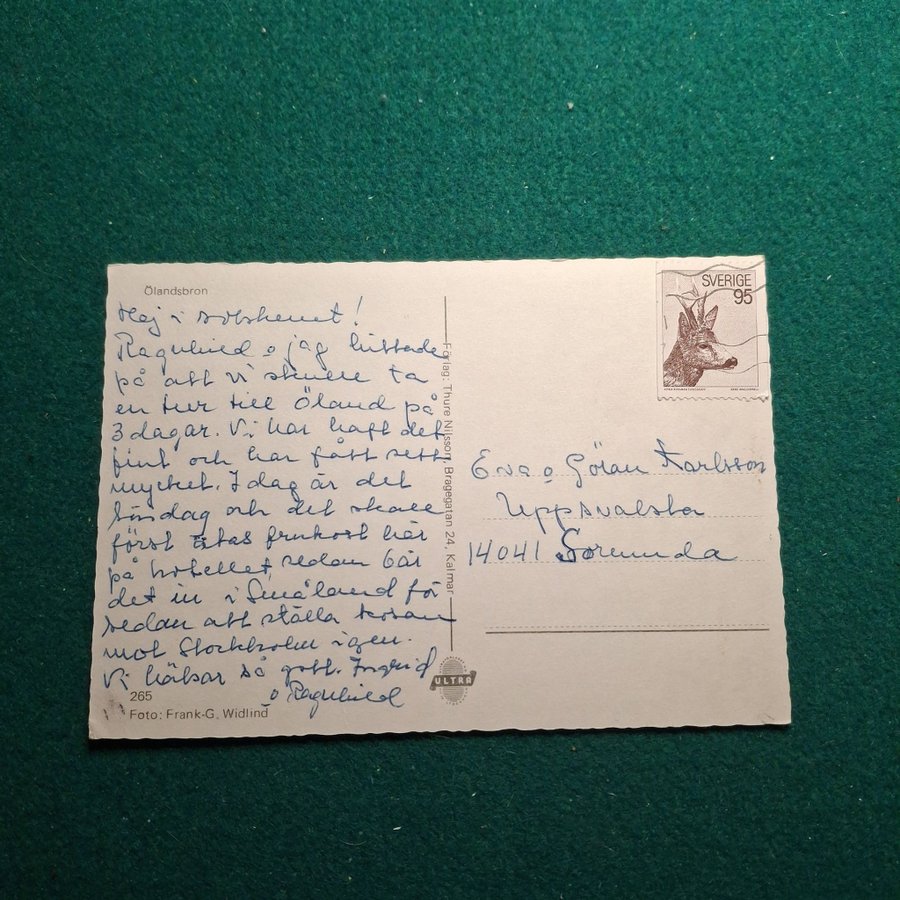 Ölandsbron
Hej i solskenet!
Ragnhild o jag hittade
på att vi skulle ta
en tur till Öland på
3 dagar. Vi har haft det
fint och har fått sett
mycket. Idag är det
Söndag och det skall
först ätas frukost här
på hotellet, sedan bär
det in i Småland för
sedan att ställa kosan
mot Stockholm igen.
Vi hälsar så gott. Ingrid
o Ragnhild
265
Foto: Frank-G. Widlind
Förlag: Thure Nilsson, Bragegatan 24, Kalmar
ULTRA
SVERIGE
95
Eva o Göran Karlsson
Uppsvalsta
14041 Sorunda